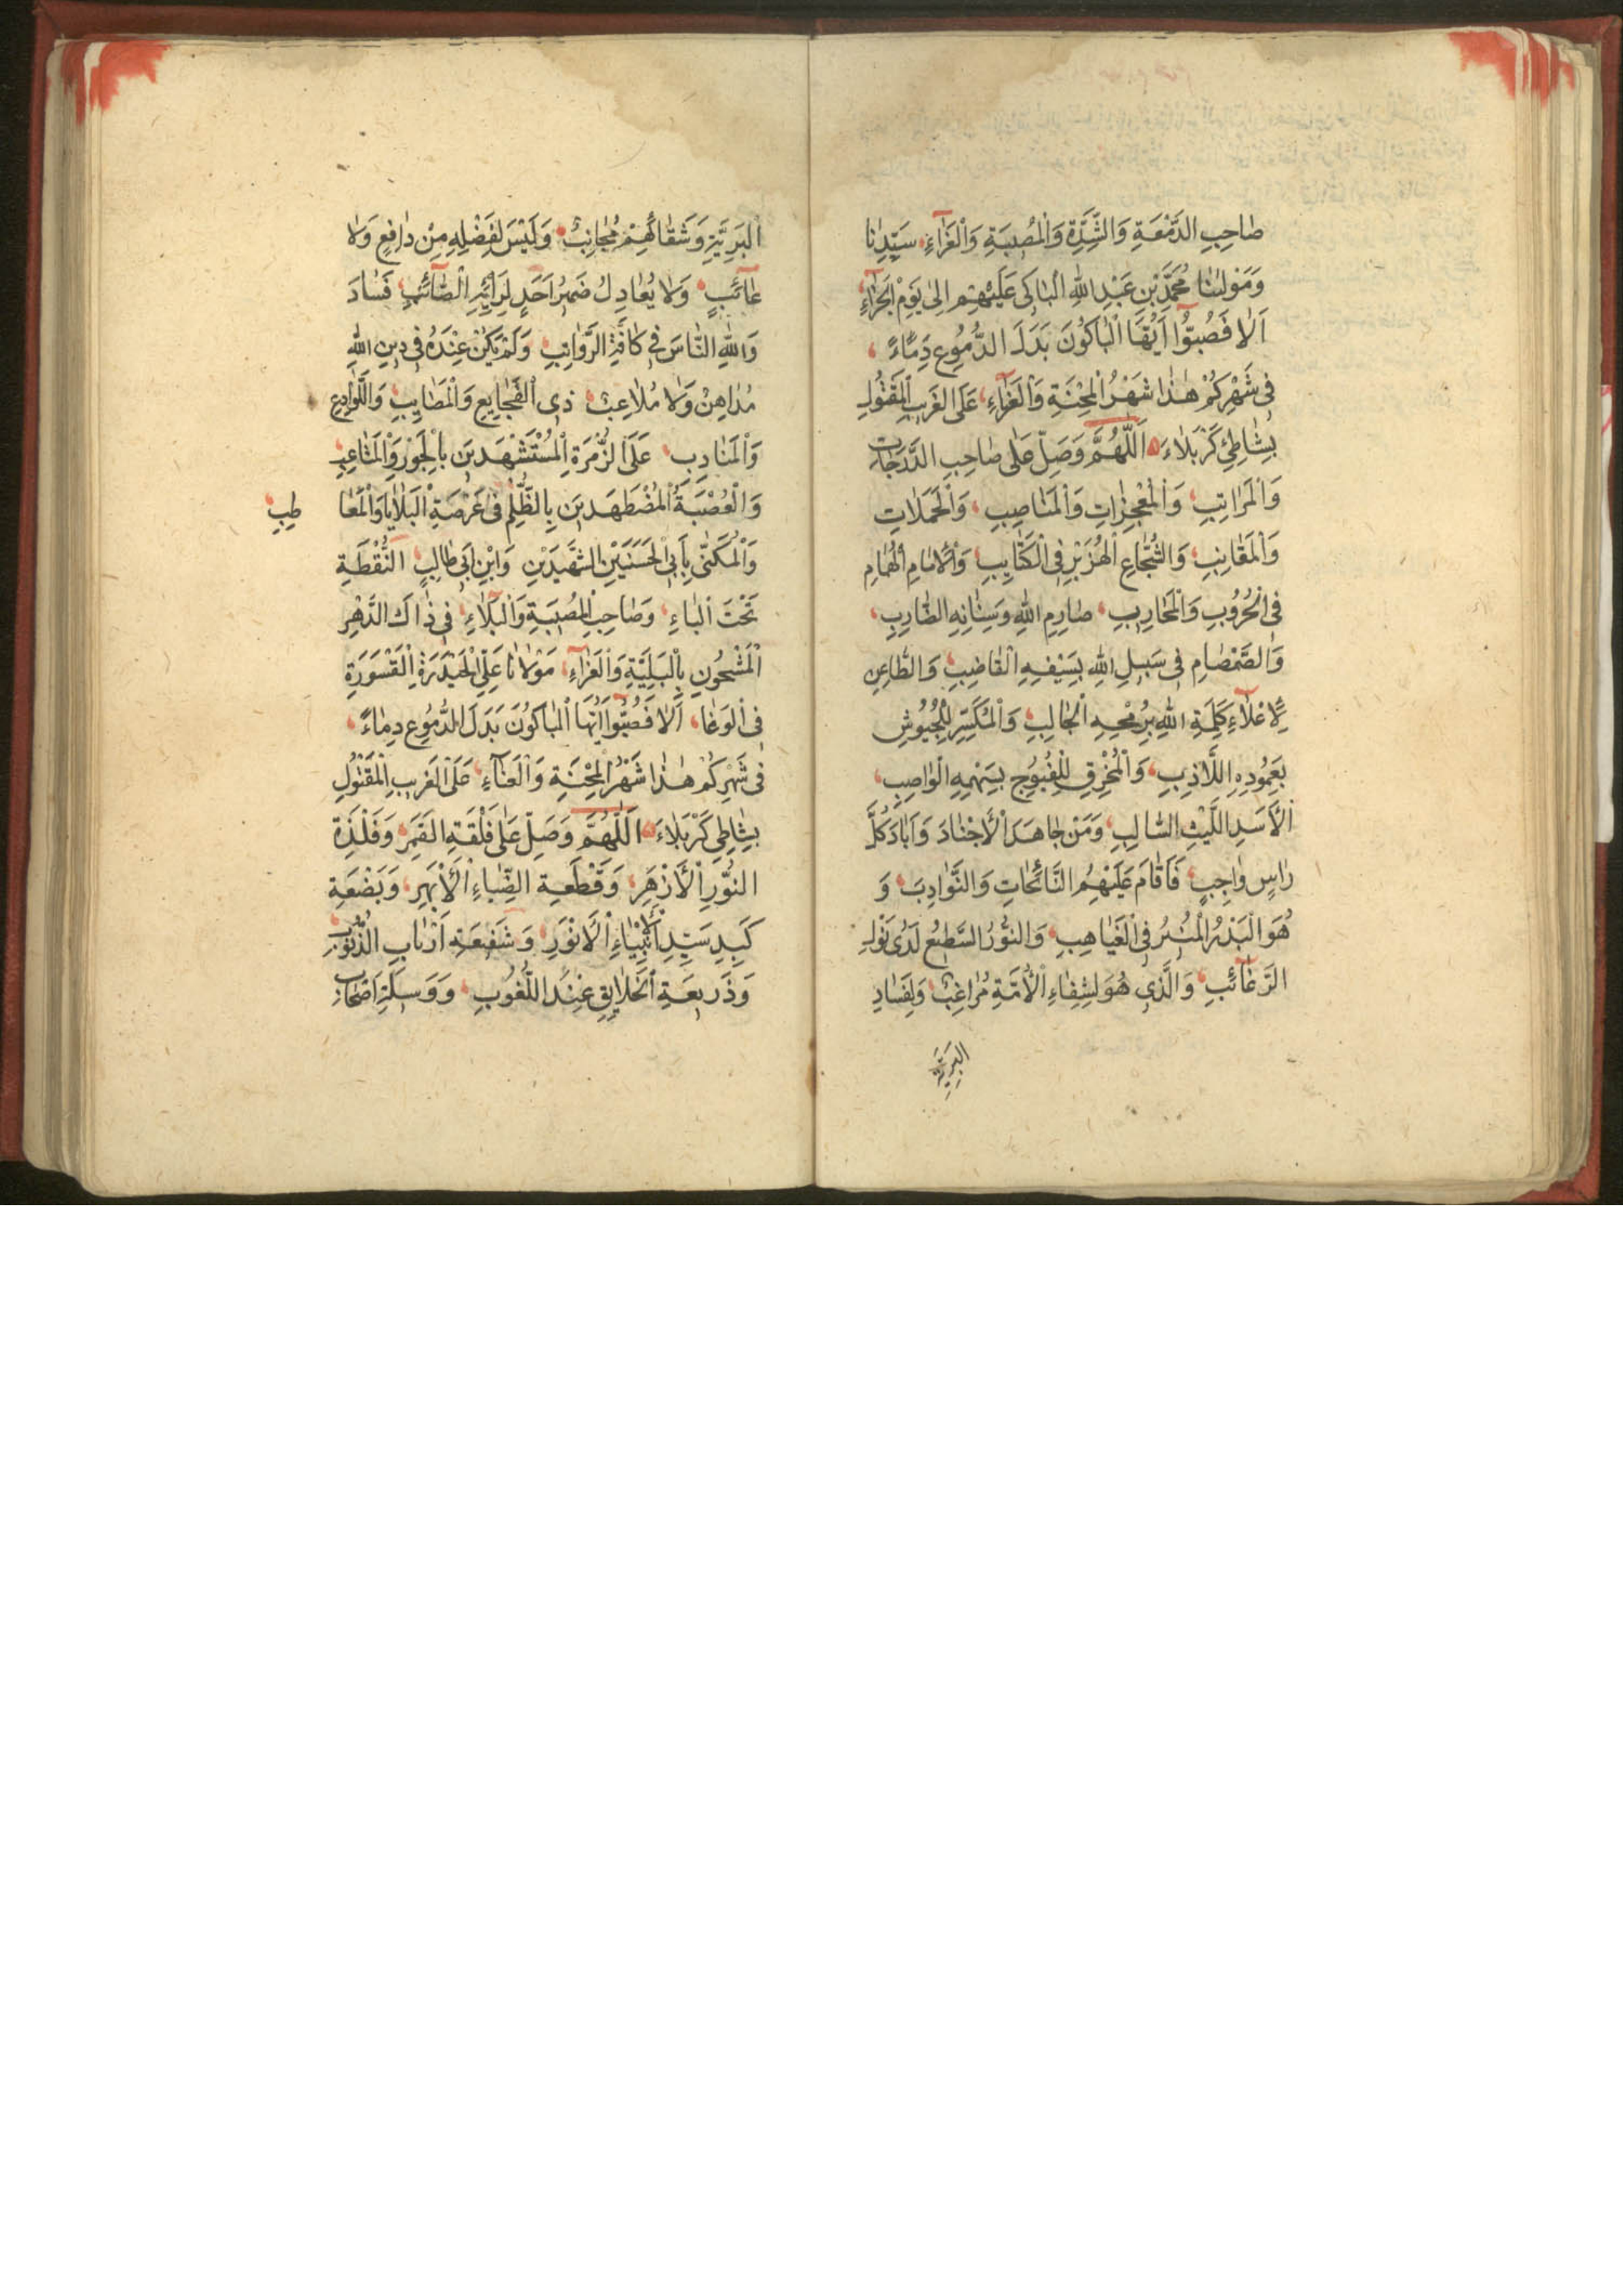 صَاحِبِ الدَّمْعَةِ وَالشِّدَّةِ وَالْمُصِيبَةِ وَالْعَزَآءِ، سَيِّدِنَا
وَمَوْلٰينَا مُحَمَّدِ بْنِ عَبْدِ اللّٰهِ الْبَاكِى عَلَيْهِمْ اِلىٰ يَوْمِ الْجَزَآءِ،
اَلَا فَصُبُّوْا اَيُّهَا الْبَاكُوْنَ بَدَلَ الدُّمُوعِ دِمَاءً،
فِى شَهْرِكُمْ هٰذَا شَهْرُ الْمِحْنَةِ وَالْعَزَآءِ، عَلَى الْغَرِيبِ الْمَقْتُولِ
بِشَاطِئِ كَرْبَلَاءَ، اَللّٰهُمَّ وَصَلِّ عَلىٰ صَاحِبِ الدَّرَجَاتِ
وَالْمَرَاتِبِ، وَالْمُعْجِزَاتِ وَالْمَنَاصِبِ، وَالْحَمَلَاتِ
وَالْمَقَانِبِ، وَالشُّجَاعِ الْهُزَبْرِ فِى الْكَتَايِبِ، وَالْاِمَامِ الْهُمَامِ
فِى الْحُرُوْبِ وَالْمَحَارِيبِ، صَارِمِ اللّٰهِ وَسِنَانِهِ الضَّارِبِ،
وَالصَّمْصَامِ فِى سَبِيلِ اللّٰهِ بِسَيْفِهِ الْقَاضِبِ، وَالطَّاعِنِ
لِاِعْلَآءِ كَلِمَةِ اللّٰهِ بِرُمْحِهِ الْجَالِبِ، وَالْمُكَسِّرِ لِلْجُيُوْشِ
بِعَمُوْدِهِ اللَّاذِبِ، وَالْمُخْرِقِ لِلْفُيُوْجِ بِسَهْمِهِ الْوَاصِبِ،
الْاَسَدِ اللَّيْثِ السَّالِبِ، وَمَنْ جَاهَدَ الْاَجْنَادَ وَاَبَادَ كُلَّ
رَاسٍ وَاجِبٍ، فَاَقَامَ عَلَيْهِمُ النَّائِحَاتِ وَالنَّوَادِبَ، وَ
هُوَ الْبَدْرُ الْمُنِيرُ فِى الْغَيَاهِبِ، وَالنُّوْرُ السَّطِيعُ لَدىٰ نَوْلِ
الرَّغَآئِبِ، وَالَّذِى هُوَ لِشِفَاءِ الْاُمَّةِ مُرَاغِبٌ، وَلِفَسَادِ
الْبَرِيَّةِ
الْبَرِيَّةِ وَشَقَائِهِمْ مُجَانِبٌ، وَلَيْسَ لِفَضْلِهِ مِنْ دَافِعٍ وَلَا
عَآئِبٍ، وَلَا يُعَادِلُ ضَمِيرُ اَحَدٍ لِرَأْيِهِ الصَّآئِبِ، فَسَادَ
وَاللّٰهِ النَّاسَ فِى كَافَّةِ الرَّوَاتِبِ، وَلَمْ يَكُنْ عِنْدَهُ فِى دِينِ اللّٰهِ
مُدَاهِنٌ وَلَا مُلَاعِبٌ، ذِى الْفَجَايِعِ وَالْمَصَايِبِ، وَاللَّوَادِعِ
وَالْمَنَادِبِ، عَلَى الزُّمْرَةِ الْمُسْتَشْهَدِينَ بِالْجَوْرِ وَالْمَتَاعِبِ،
وَالْعُصْبَةِ الْمُضْطَهَدِينَ بِالظُّلْمِ فِى عَرْصَةِ الْبَلَايَا وَالْمَعَا طِبِ،
وَالْمُكَنّٰى بِاَبِى الْحَسَنَيْنِ الشَّهِيدَيْنِ وَابْنِ اَبِى طَالِبٍ، النُّقْطَةِ
تَحْتَ الْبَاءِ، وَصَاحِبِ الْمُصِيبَةِ وَالْبَلَآءِ، فِى ذَاكَ الدَّهْرِ
الْمَشْحُونِ بِالْبَلِيَّةِ وَالْعَزَآءِ، مَوْلَانَا عَلِىِّ الْحَيْدَرَةِ الْقَسْوَرَةِ
فِى الْوَغَا، اَلَا فَصُبُّوْا اَيُّهَا الْبَاكُوْنَ بَدَلَ الدُّمُوعِ دِمَاءً،
فِى شَهْرِكُمْ هٰذَا شَهْرُ الْمِحْنَةِ وَالْعَنَآءِ، عَلَى الْغَرِيبِ الْمَقْتُولِ
بِشَاطِى كَرْبَلَاءَ، اَللّٰهُمَّ وَصَلِّ عَلىٰ فَلْقَةِ الْقَمَرِ، وَفَلْذَةِ
النُّوْرِ الْاَزْهَرِ، وَقَطْعَةِ الضِّيَاءِ الْاَبْهَرِ، وَبَضْعَةِ
كَبِدِ سَيِّدِ الْاَنْبِيَاءِ الْاَنْوَرِ، وَشَفِيعَةِ اَرْبَابِ الذُّنُوبِ،
وَذَرِيعَةِ الْخَلَايِقِ عِنْدَ اللُّغُوْبِ، وَوَسِيلَةِ اَصْحَابِ